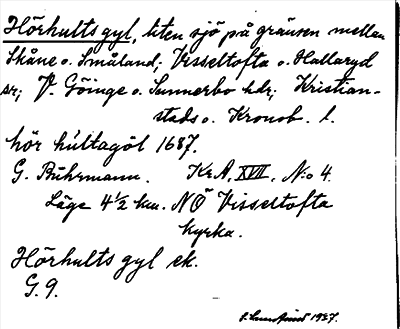 Hörhults gyl, liten sjö på gränsen mellan
Skåne o. Småland; Visseltofta o. Hallaryd
sr; V. Göinge o. Sunnerbo hdr; Kristian-
stads o. Kronob. l.
hör hultagöl 1687.
G. Buhrmann. Kr.A. XVII. N:o 4.
Läge 4 1/2 km. NÖ Visseltofta
kyrka.
Hörhults gyl ek.
G. 9.
1937.